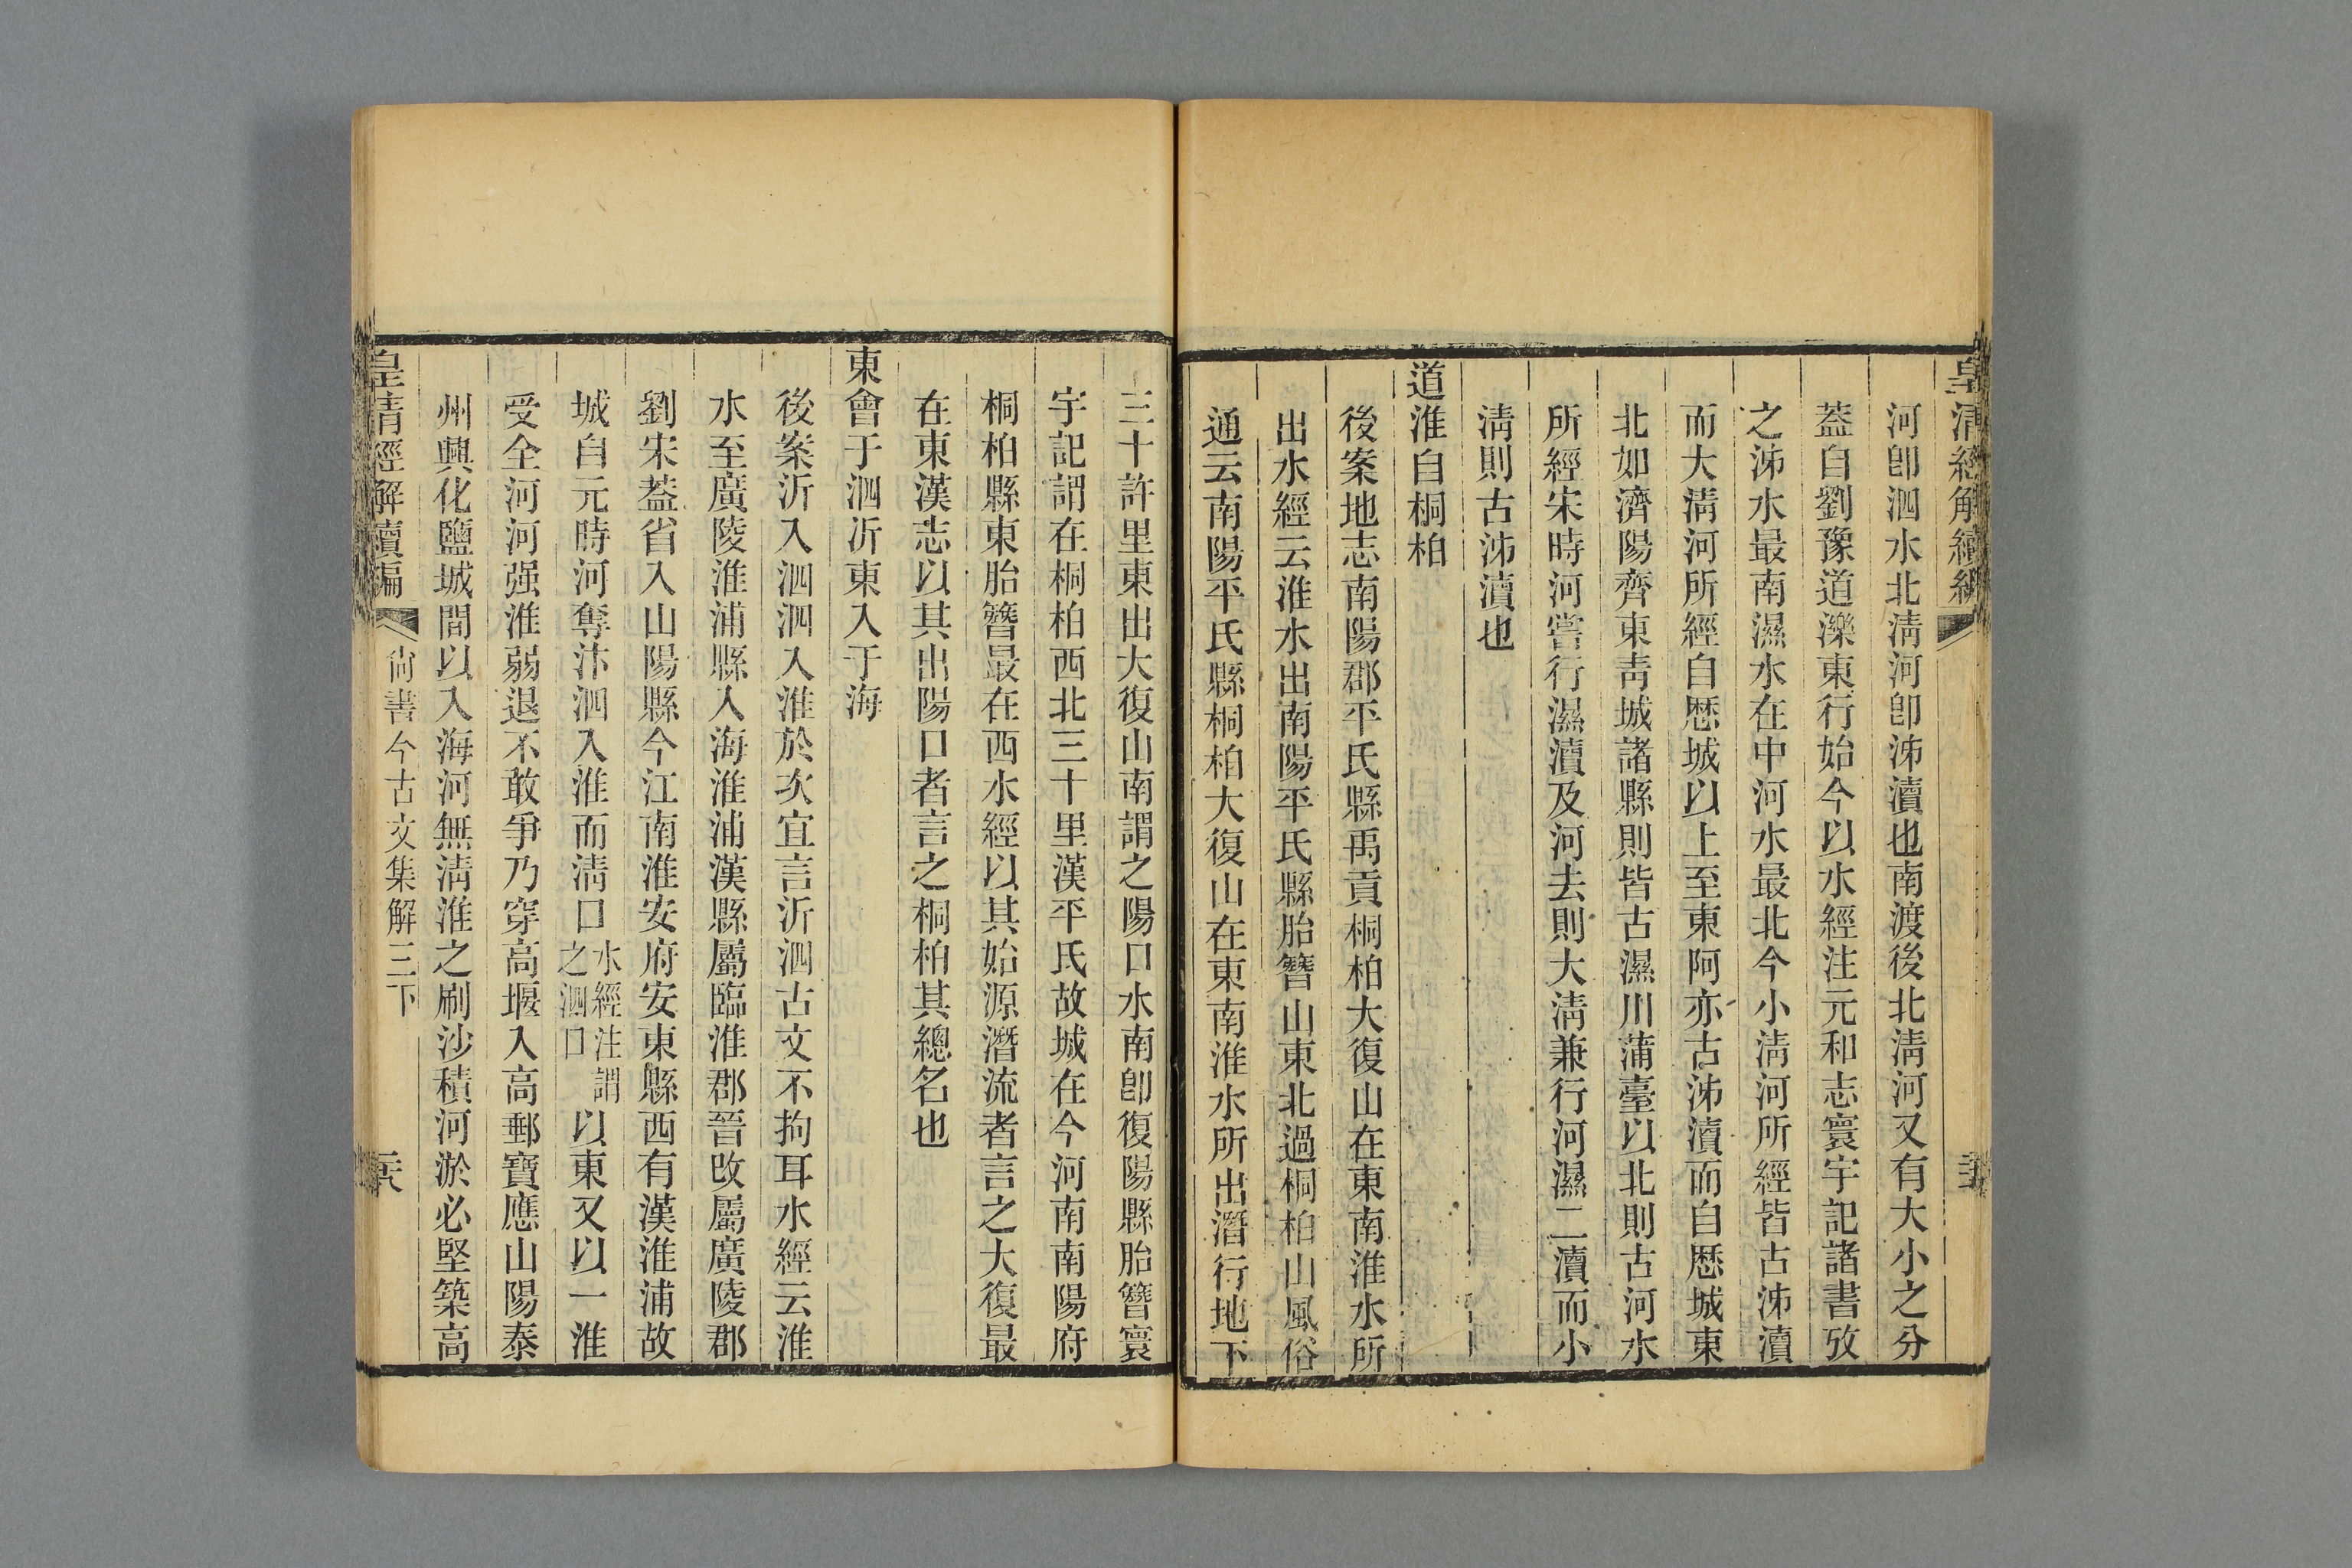 皇清經解續編
河卽泗水北淸河卽泲瀆也南渡後北淸河又有大小之分
葢自劉豫道濼東行始今以水經注元和志寰宇記諸書攷
之泲水最南濕水在中河水最北今小淸河所經皆古泲瀆
而大淸河所經自歷城以上至東阿亦古泲瀆而自歷城東
北如濟陽齊東靑城諸縣則皆古濕川蒲臺以北則古河水
所經宋時河嘗行濕瀆及河去則大淸兼行河濕二瀆而小
淸則古泲瀆也
道淮自桐柏
後案地志南陽郡平氏縣禹貢桐柏大復山在東南淮水所
出水經云淮水出南陽平氏縣胎簪山東北過桐柏山風俗
通云南陽平氏縣桐柏大復山在東南淮水所出潛行地下
三十許里東出大復山南謂之陽口水南卽復陽縣胎簪寰
宇記謂在桐柏西北三十里漢平氏故城在今河南南陽府
桐柏縣東胎簪最在西水經以其始源潛流者言之大復最
在東漢志以其出陽口者言之桐柏其總名也
東會于泗沂東入于海
後案沂入泗泗入淮於次宜言沂泗古文不拘耳水經云淮
水至廣陵淮浦縣入海淮浦漢縣屬臨淮郡晉改屬廣陵郡
劉宋葢省入山陽縣今江南淮安府安東縣西有漢淮浦故
城自元時河奪汴泗入淮而淸口水經注謂之泗口以東又以一淮
受全河河强淮弱退不敢爭乃穿高堰入高郵寶應山陽泰
州興化鹽城間以入海河無淸淮之刷沙積河淤必堅築高
皇淸經解續編 尙書今古文集解三下 三六